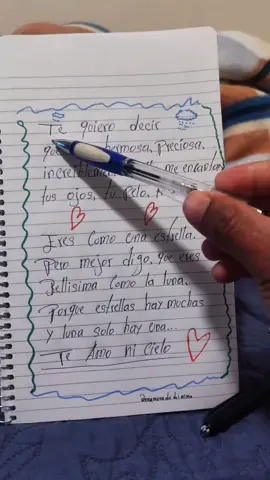 Te quiero decir
hermosa, Preciosa,
me encantan
tus ojos, tu Pelo,
Eres Como una estrella.
Pero mejor digo, que eres
Bellisima Como la luna.
Porque estrellas hay muchas
y luna solo hay una...
Te Amo mi Cielo